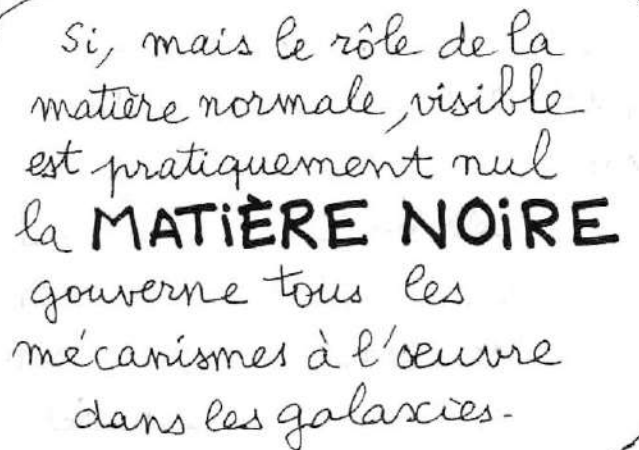 Si, mais le rôle de la
matière normale, visible
est pratiquement nul
la MATIÈRE NOIRE
gouverne tous les
mécanismes à l'œuvre
dans les galaxies.